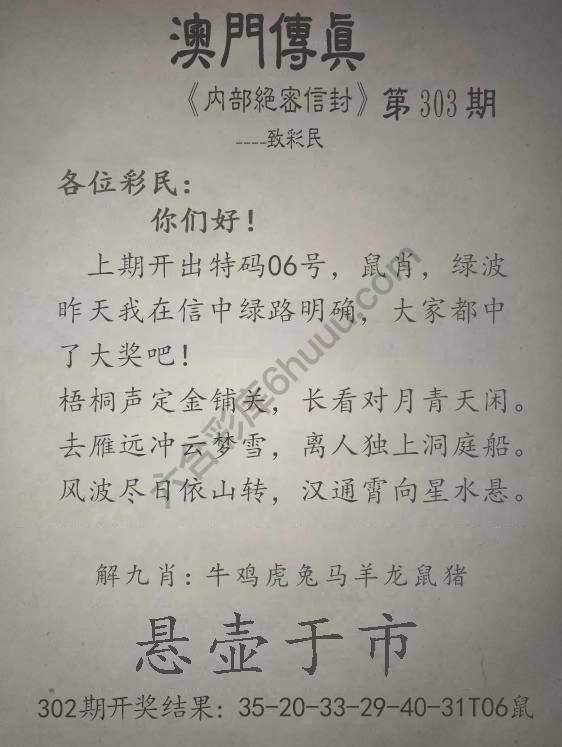 澳門傳眞
《内部絕密信封》第303期
----致彩民
各位彩民：
你们好！
上期开出特码06号，鼠肖，绿波
昨天我在信中绿路明确，大家都中
了大奖吧！
梧桐声定金铺关，长看对月青天闲。
去雁远冲云梦雪，离人独上洞庭船。
风波尽日依山转，汉通霄向星水悬。
解九肖：牛鸡虎兔马羊龙鼠猪
悬壶于市
302期开奖结果：35-20-33-29-40-31T06鼠
六合彩库6huuu.com